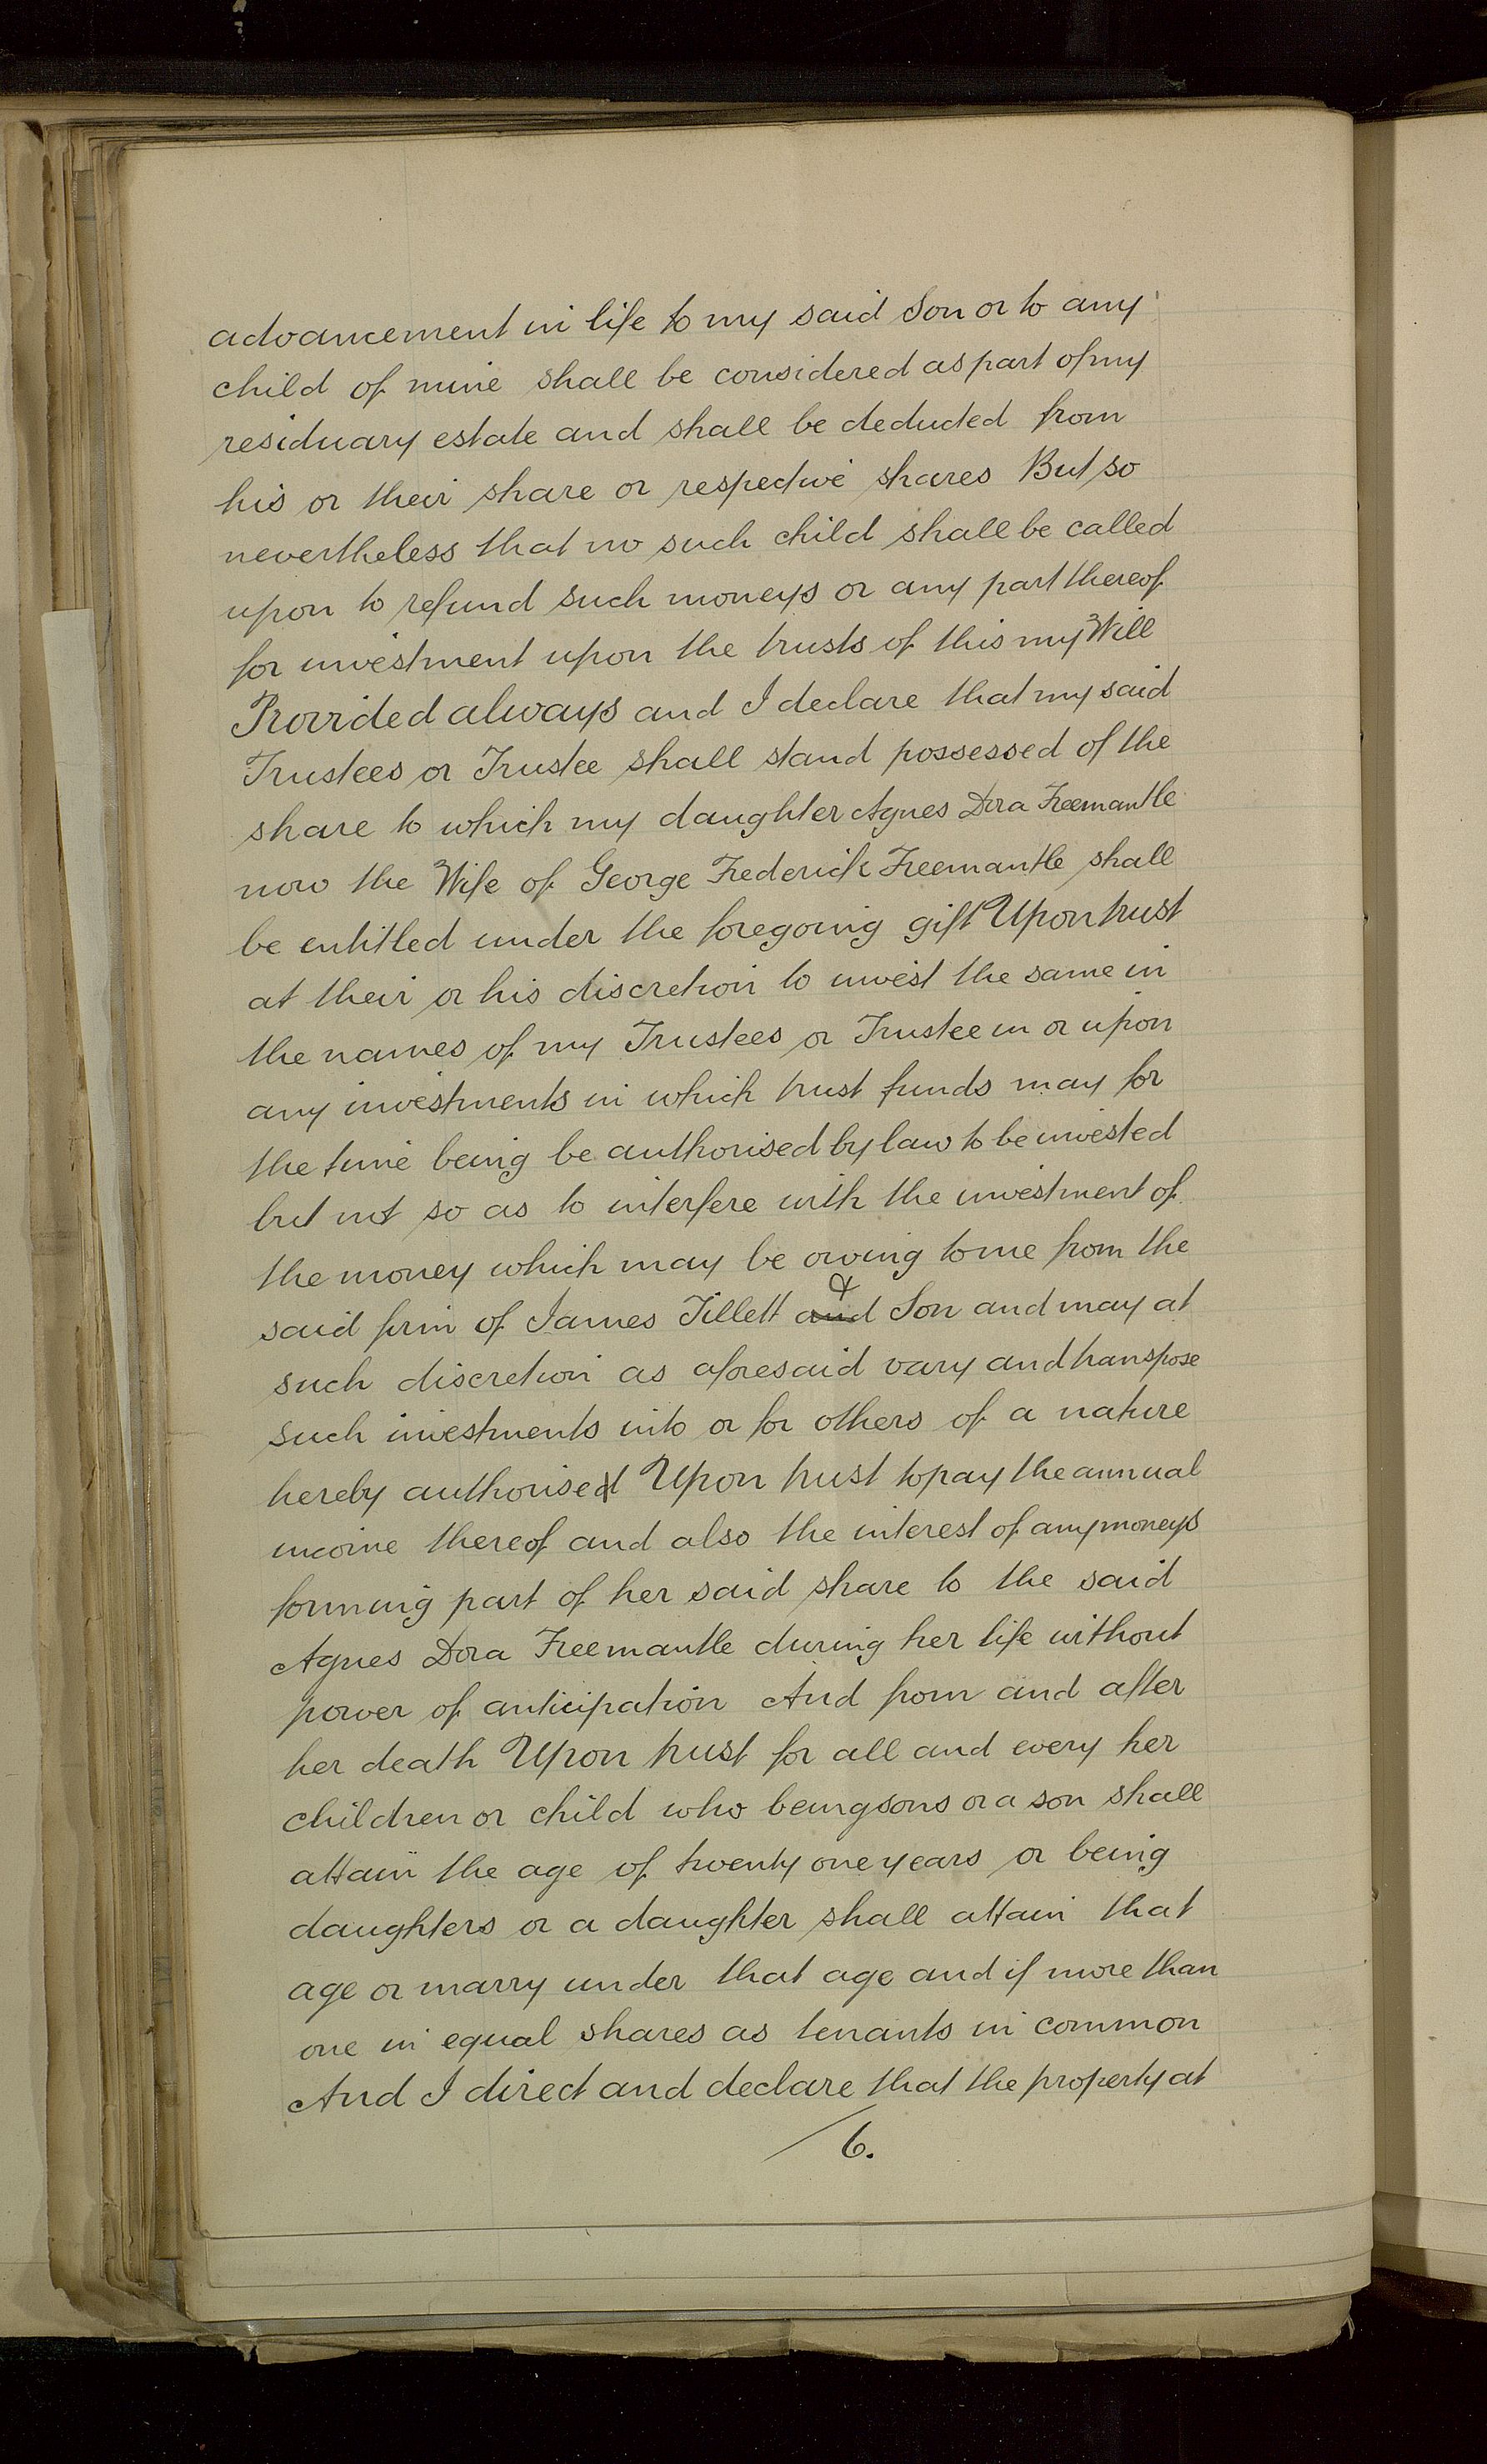 advancement in life to my said Son or to any
child of mine shall be considered as part of my
residuary estate and shall be deducted from
his or their share or respective shares But so
nevertheless that no such child shall be called
upon to refund such moneys or any part thereof
for investment upon the trusts of this my Will
Provided always and I declare that my said
Trustees or Trustee shall stand possessed of the
share to which my daughter Agnes Dora Freemantle
now the Wife of George Frederick Freemantle shall
be entitled under the foregoing gift Upon trust
at their or his discretion to invest the same in
the names of my Trustees or Trustee in or upon
any investments in which trust funds may for
the time being be authorised by law to be invested
but not so as to interfere with the investment of
the money which may be owing to me from the
said firm of James Tillett and & Son and may at
such discretion as aforesaid vary and transpose
such investments into or for others of a nature
hereby authorised Upon trust to pay the annual
income thereof and also the interest of any moneys
forming part of her said share to the said
Agnes Dora Freemantle during her life without
power of anticipation And from and after
her death Upon trust for all and every her
children or child who being sons or a son shall
attain the age of twenty one years or being
daughters or a daughter shall attain that
age or marry under that age and if more than
one in equal shares as tenants in common
And I direct and declare that the property at
6.